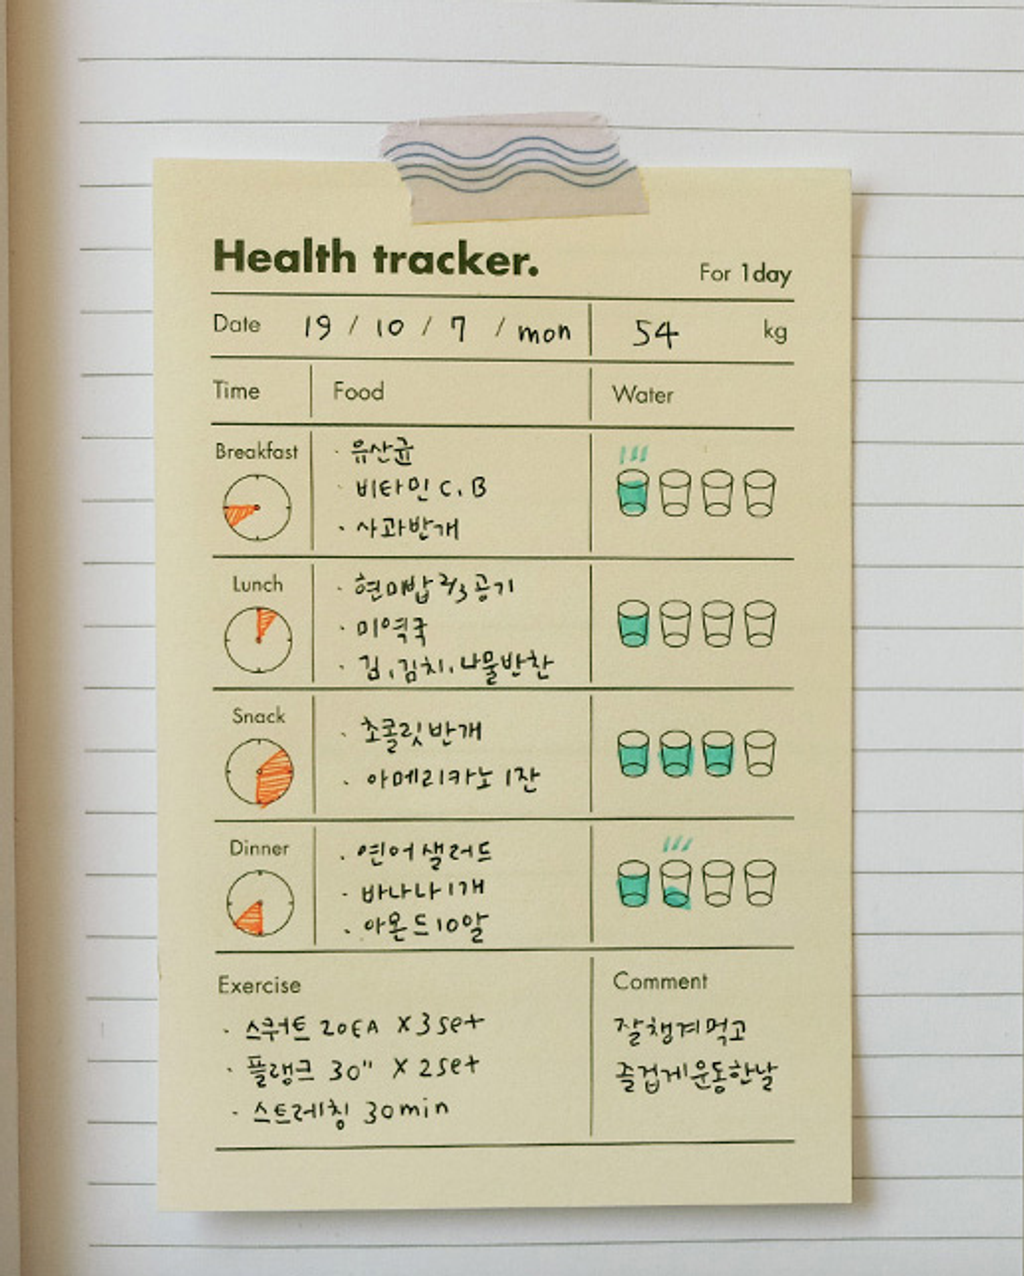 Health tracker.
For 1day
Date 19 / 10 / 7 / mon 54 kg
Time Food Water
Breakfast
· 유산균
· 비타민 C, B
· 사과반개
Lunch
· 현미밥 2/3 공기
· 미역국
· 김, 김치, 나물반찬
Snack
· 초콜릿 반개
· 아메리카노 1잔
Dinner
· 연어 샐러드
· 바나나 1개
· 아몬드 10알
Exercise
· 스쿼트 20EA X 3set
· 플랭크 30" X 2set
· 스트레칭 30min
Comment
잘챙겨먹고
즐겁게운동한날